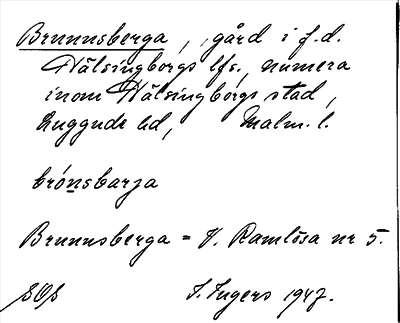 Brunnsberga, gård i f.d.
Hälsingborgs lfs., numera
inom Hälsingborgs stad,
Luggude hd, Malm. l.
brónsbarja
Brunnsberga = V. Ramlösa nr 5.
S. Ingers 1947.